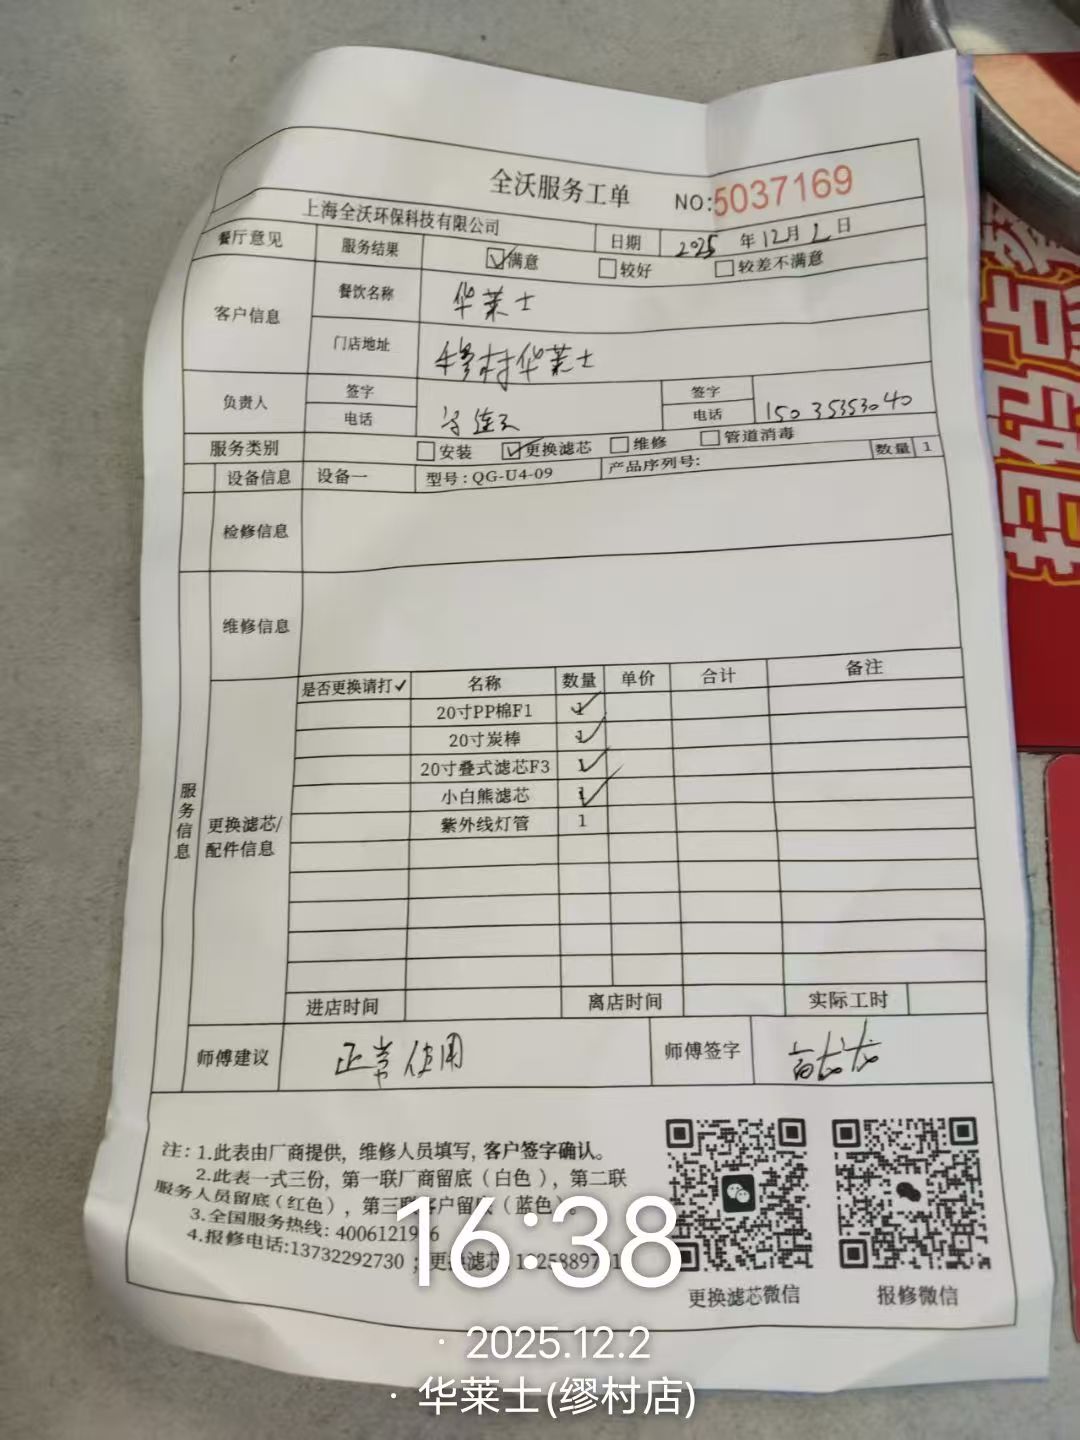 全沃服务工单 NO:5037169
上海全沃环保科技有限公司 日期 2025 年 12 月 2 日
餐厅意见 服务结果 满意 较好 较差不满意
客户信息 餐饮名称 华莱士
门店地址 缪村华莱士
负责人 签字 签字
电话 电话 15035353040
服务类别 安装 更换滤芯 维修 管道消毒
设备信息 设备一 型号:QG-U4-09 产品序列号: 数量 1
检修信息
维修信息
服务信息
更换滤芯/配件信息
是否更换请打✓ 名称 数量 单价 合计 备注
20寸PP棉F1 1
20寸炭棒 1
20寸叠式滤芯F3 1
小白熊滤芯 1
紫外线灯管 1
进店时间 离店时间 实际工时
师傅建议 正常使用 师傅签字
注: 1.此表由厂商提供, 维修人员填写, 客户签字确认。
2.此表一式三份, 第一联厂商留底 (白色), 第二联
服务人员留底 (红色), 第三联客户留底 (蓝色)
3.全国服务热线: 4006121
4.报修电话:13732292730 ; 更换滤芯
更换滤芯微信 报修微信
16:38
· 2025.12.2
· 华莱士(缪村店)